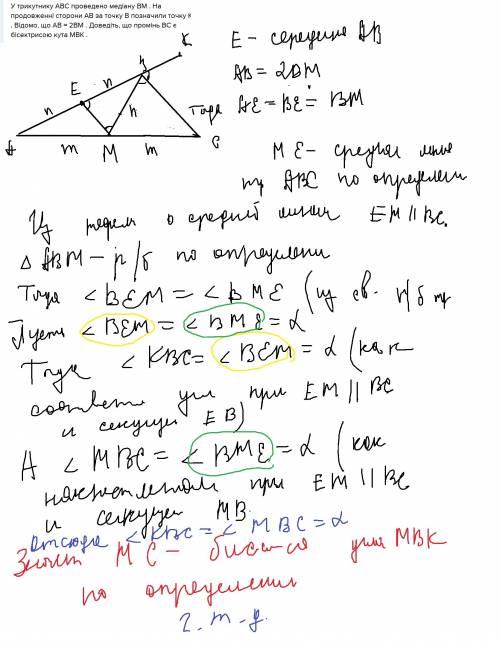 У трикутнику ABC проведено медіану BM . На
продовженні сторони AB за точку B позначили точку К
. Відомо, що AB = 2BM . Доведіть, що промінь BC є
бісектрисою кута MBK .
K
E
n
n
n
A
m
M
m
C
E - середина AB
AB = 2BM
Тогда AE = BE = BM
ME - средняя линия
тр ABC по определен
Из теорем о средней линии EM || BC.
Δ ABM - р/б по определени
Тогда < BEM = < BME (из св- р/б тр
Пусть < BEM = < BME = α
Тогда < KBC = < BEM = α (как
соответ углы при EM || BC
и секущ EB)
А < MBC = < BME = α (как
накрестлежащ при EM || BC
и секущей MB.
Отсюда < KBC = < MBC = α
Значит MC - бисс-са угла MBK
по определению
г. т - д.